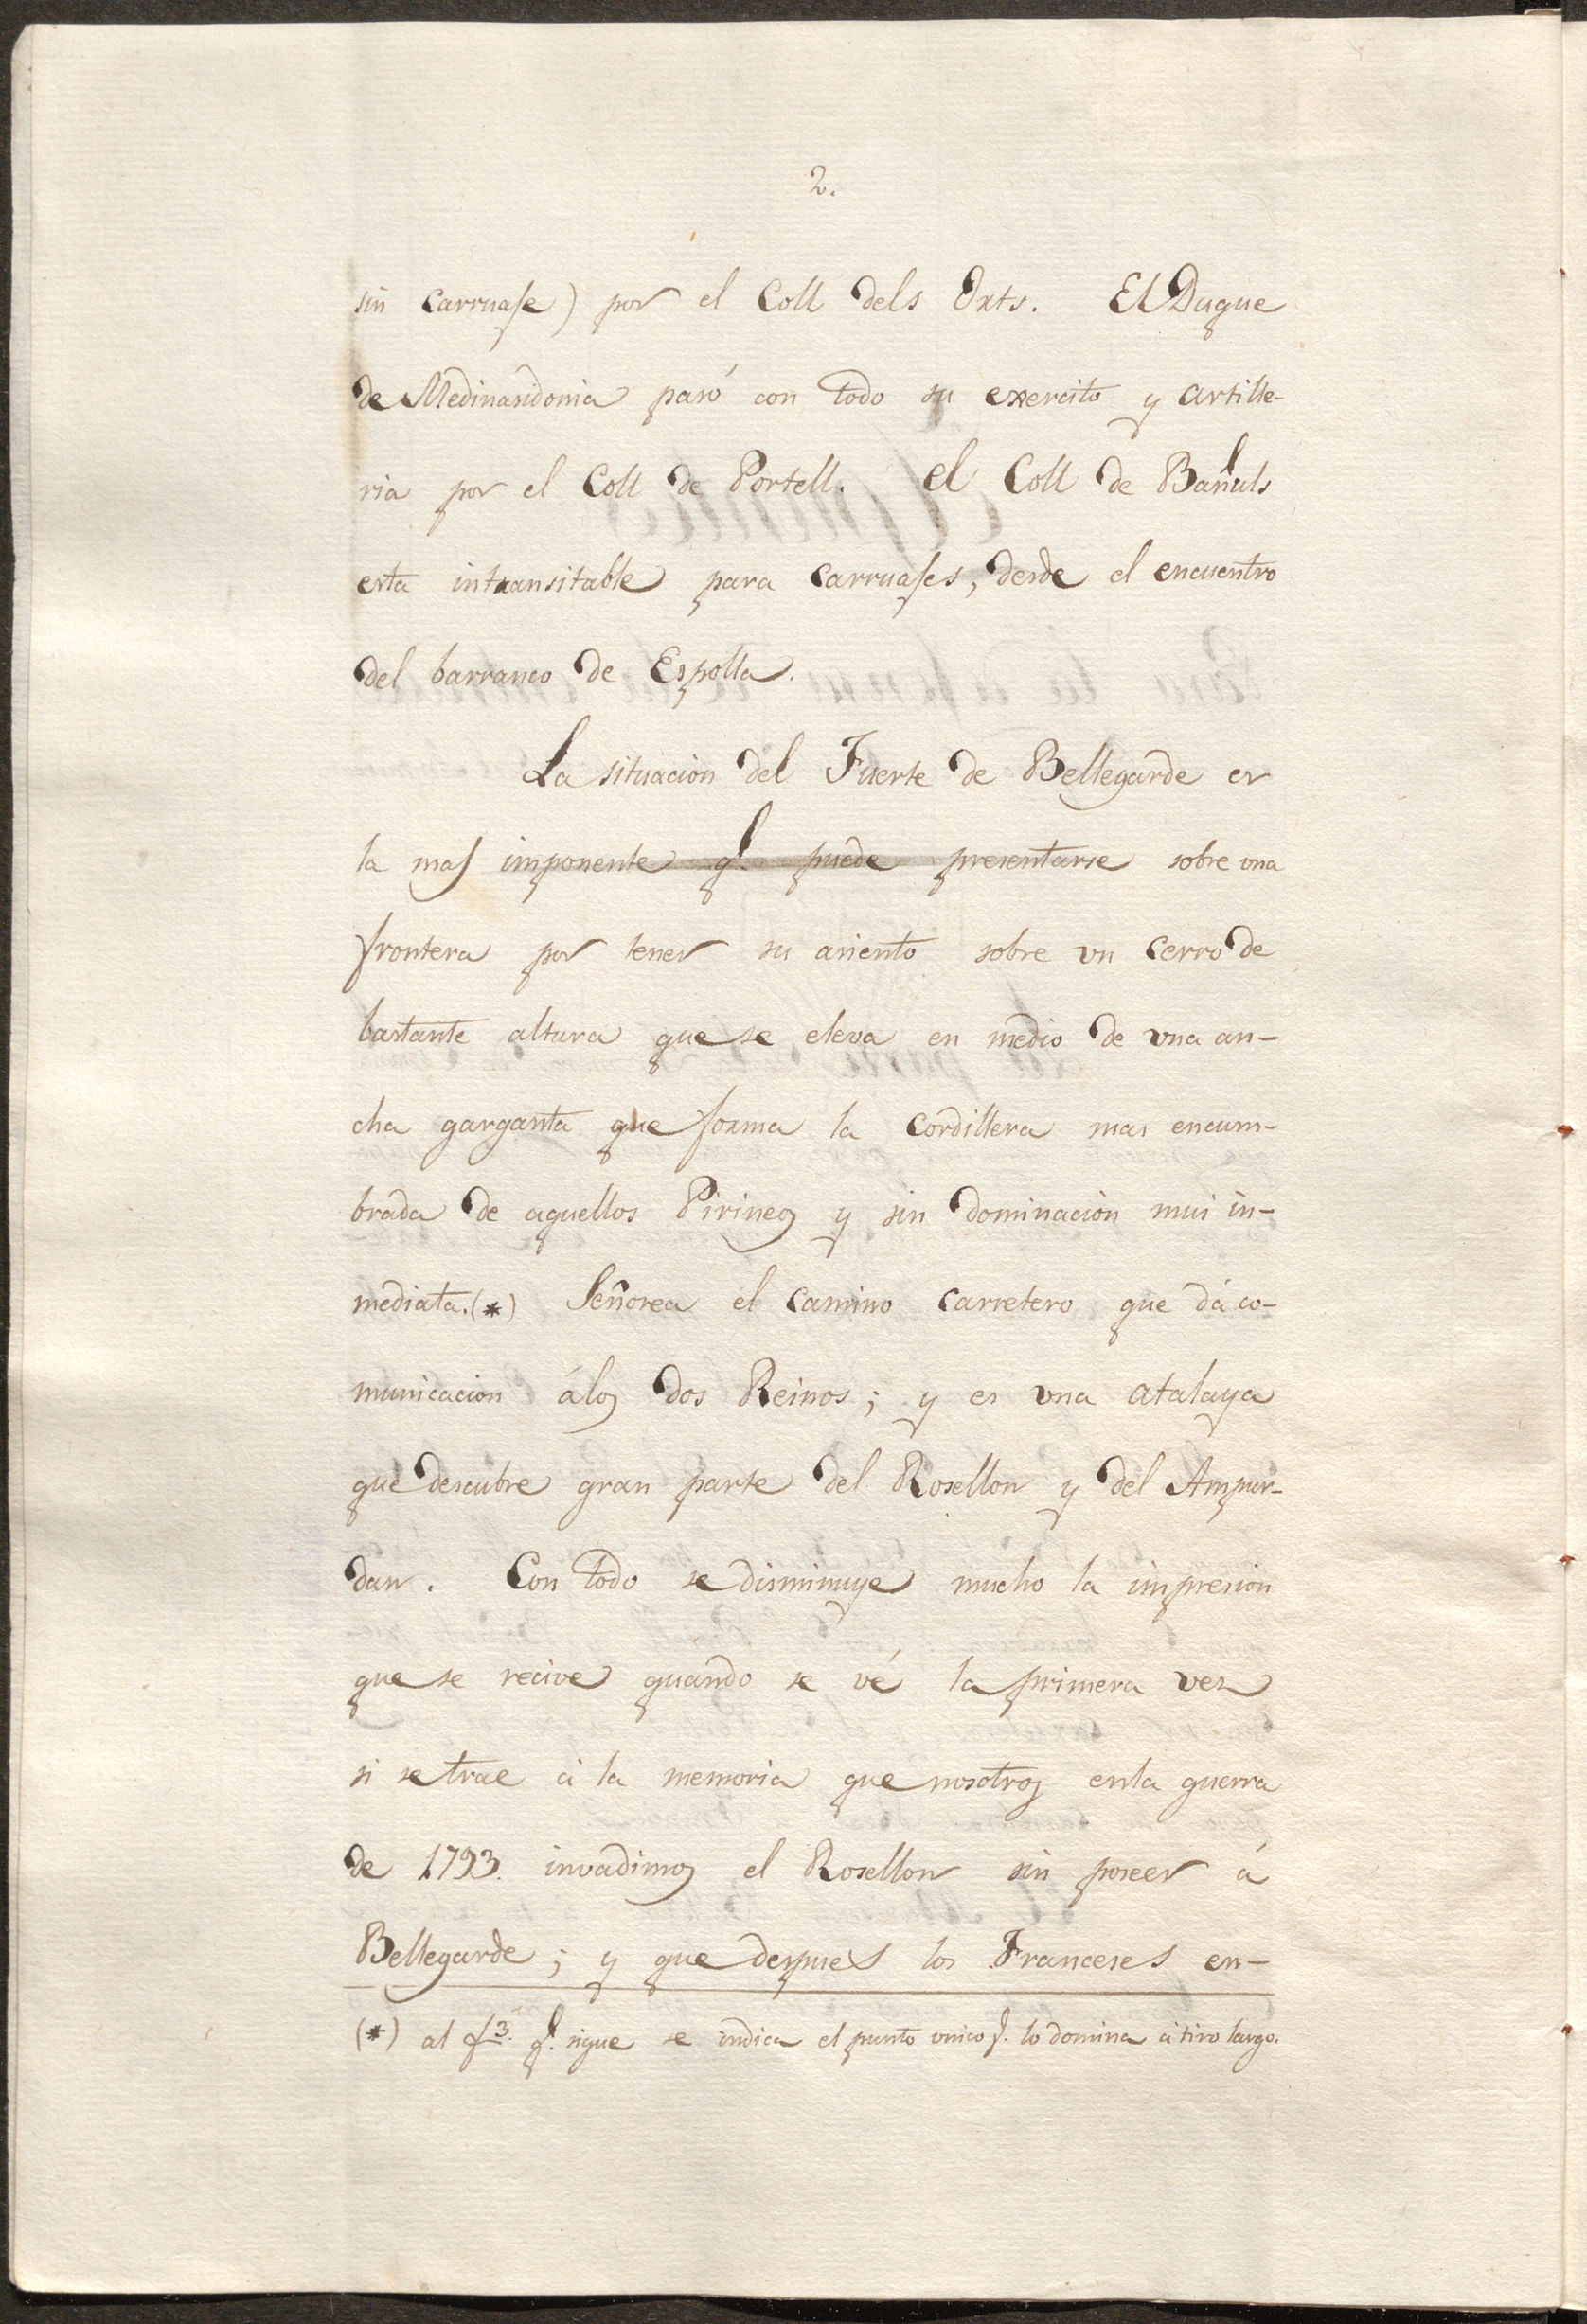 2.
sin carruaje) por el Coll dels Orts. El Duque
de Medinasidonia pasó con todo su exercito y artille-
ria por el Coll de Portell. el Coll de Bañuls
esta intransitable para carruajes, desde el encuentro
del barranco de Espolla.
La situacion del Fuerte de Bellegarde es
la mas imponente q.e puede presentarse sobre una
frontera por tener su asiento sobre un cerro de
bastante altura que se eleva en medio de una an-
cha garganta que forma la cordillera mas encum-
brada de aquellos Pirineos y sin dominacion mui in-
mediata. (*) Señorea el camino carretero que dá co-
municacion á los dos Reinos; y es una atalaya
que descubre gran parte del Rosellon y del Ampur-
dan. Con todo se disminuye mucho la impresion
que se recive quando se vé la primera vez
si se trae á la memoria que nosotros en la guerra
de 1793. invadimos el Rosellon sin poseer á
Bellegarde; y que despues los Franceses en-
(*) al f 3. q.e sigue se indica el punto unico q.e lo domina á tiro largo.